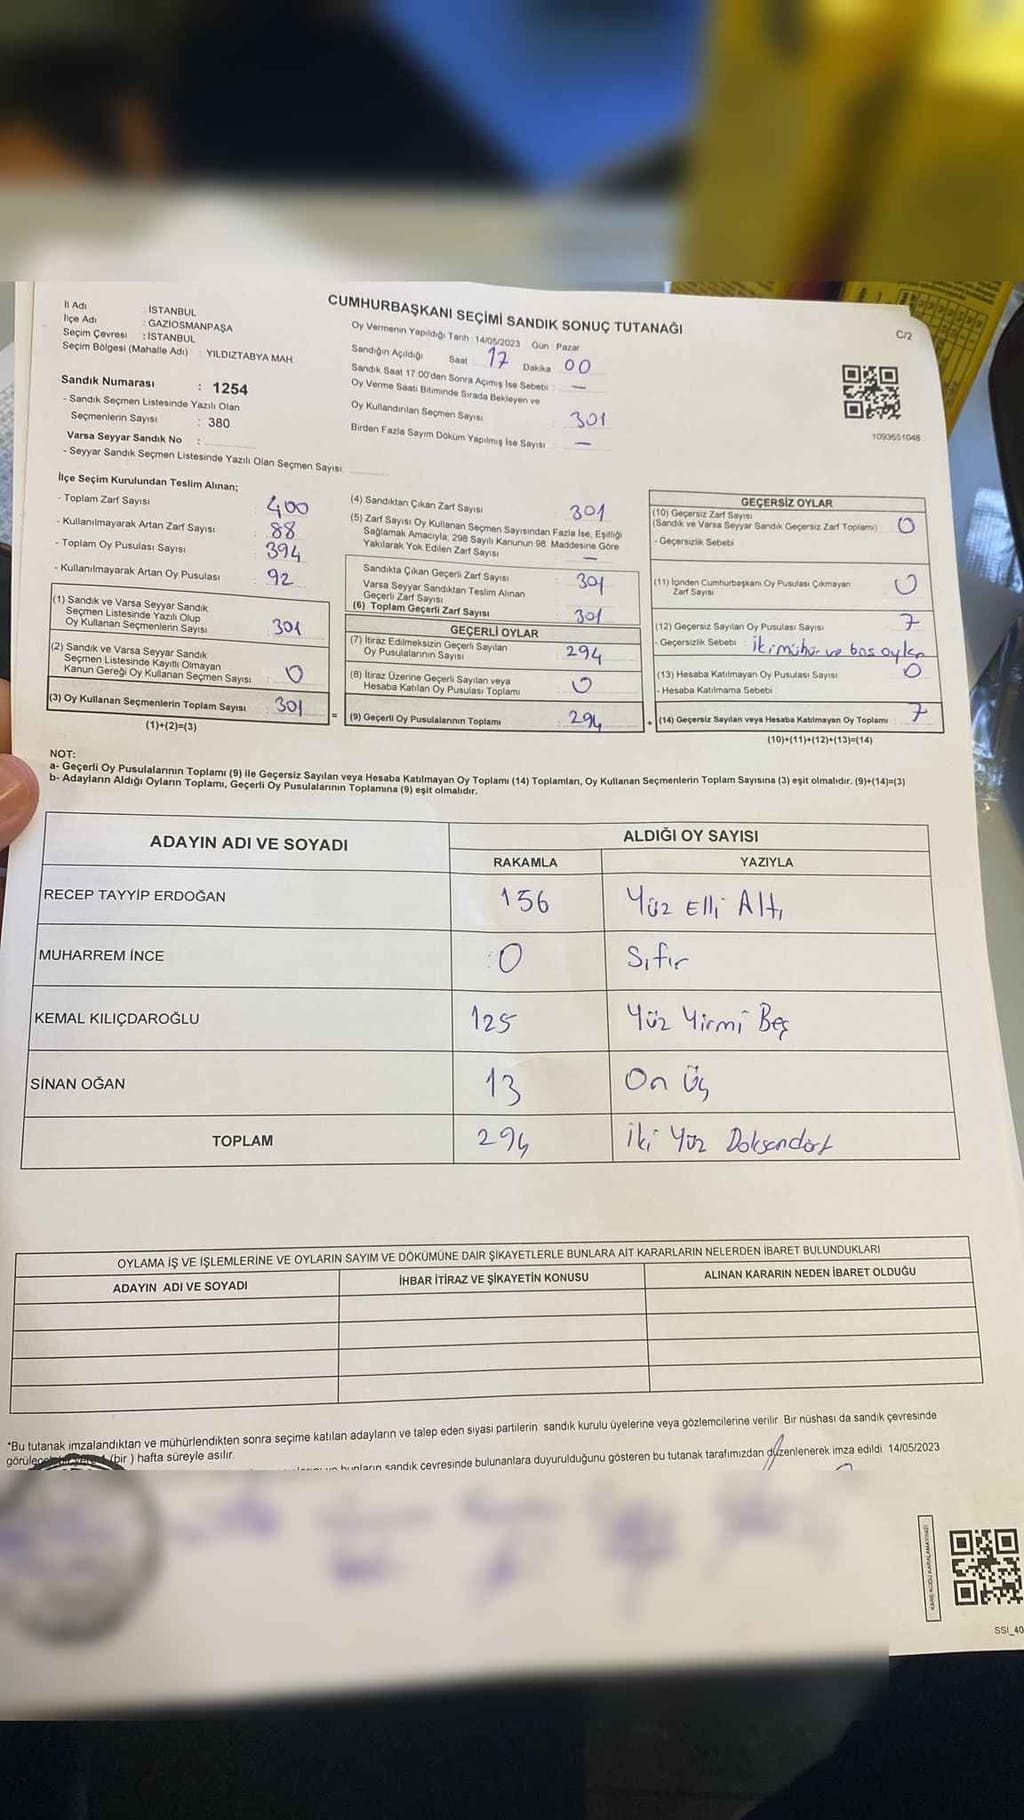 CUMHURBAŞKANI SEÇİMİ SANDIK SONUÇ TUTANAĞI
C/2
İl Adı : İSTANBUL
İlçe Adı : GAZİOSMANPAŞA
Seçim Çevresi : İSTANBUL
Seçim Bölgesi (Mahalle Adı) : YILDIZTABYA MAH.
Sandık Numarası : 1254
- Sandık Seçmen Listesinde Yazılı Olan
Seçmenlerin Sayısı : 380
Varsa Seyyar Sandık No :
- Seyyar Sandık Seçmen Listesinde Yazılı Olan Seçmen Sayısı
Oy Vermenin Yapıldığı Tarih : 14/05/2023 Gün : Pazar
Sandığın Açıldığı Saat 17 Dakika 00
Sandık Saat 17:00'den Sonra Açımış İse Sebebi : —
Oy Verme Saati Bitiminde Sırada Bekleyen ve
Oy Kullandırılan Seçmen Sayısı 301
Birden Fazla Sayım Döküm Yapılmış İse Sayısı —
1093651048
İlçe Seçim Kurulundan Teslim Alınan;
- Toplam Zarf Sayısı 400
- Kullanılmayarak Artan Zarf Sayısı : 88
- Toplam Oy Pusulası Sayısı : 394
- Kullanılmayarak Artan Oy Pusulası : 92
(1) Sandık ve Varsa Seyyar Sandık
Seçmen Listesinde Yazılı Olup
Oy Kullanan Seçmenlerin Sayısı : 301
(2) Sandık ve Varsa Seyyar Sandık
Seçmen Listesinde Kayıtlı Olmayan
Kanun Gereği Oy Kullanan Seçmen Sayısı : 0
(3) Oy Kullanan Seçmenlerin Toplam Sayısı : 301
(1)+(2)=(3)
(4) Sandıktan Çıkan Zarf Sayısı : 301
(5) Zarf Sayısı Oy Kullanan Seçmen Sayısından Fazla İse, Eşitliği
Sağlamak Amacıyla; 298 Sayılı Kanunun 98. Maddesine Göre
Yakılarak Yok Edilen Zarf Sayısı —
Sandıkta Çıkan Geçerli Zarf Sayısı 301
Varsa Seyyar Sandıktan Teslim Alınan
Geçerli Zarf Sayısı
(6) Toplam Geçerli Zarf Sayısı 301
GEÇERLİ OYLAR
(7) İtiraz Edilmeksizin Geçerli Sayılan
Oy Pusulalarının Sayısı : 294
(8) İtiraz Üzerine Geçerli Sayılan veya
Hesaba Katılan Oy Pusulası Toplamı : 0
= (9) Geçerli Oy Pusulalarının Toplamı : 294
GEÇERSİZ OYLAR
(10) Geçersiz Zarf Sayısı
(Sandık ve Varsa Seyyar Sandık Geçersiz Zarf Toplamı) 0
- Geçersizlik Sebebi :
(11) İçinden Cumhurbaşkanı Oy Pusulası Çıkmayan
Zarf Sayısı 0
(12) Geçersiz Sayılan Oy Pusulası Sayısı 7
- Geçersizlik Sebebi : İki mühür ve boş oylar
(13) Hesaba Katılmayan Oy Pusulası Sayısı 0
- Hesaba Katılmama Sebebi :
+ (14) Geçersiz Sayılan veya Hesaba Katılmayan Oy Toplamı : 7
(10)+(11)+(12)+(13)=(14)
NOT:
a- Geçerli Oy Pusulalarının Toplamı (9) ile Geçersiz Sayılan veya Hesaba Katılmayan Oy Toplamı (14) Toplamları, Oy Kullanan Seçmenlerin Toplam Sayısına (3) eşit olmalıdır. (9)+(14)=(3)
b- Adayların Aldığı Oyların Toplamı, Geçerli Oy Pusulalarının Toplamına (9) eşit olmalıdır.
ADAYIN ADI VE SOYADI ALDIĞI OY SAYISI
RAKAMLA YAZIYLA
RECEP TAYYİP ERDOĞAN 156 Yüz Elli Altı
MUHARREM İNCE : 0 Sıfır
KEMAL KILIÇDAROĞLU 125 Yüz Yirmi Beş
SİNAN OĞAN 13 On Üç
TOPLAM 294 İki Yüz Doksandört
OYLAMA İŞ VE İŞLEMLERİNE VE OYLARIN SAYIM VE DÖKÜMÜNE DAİR ŞİKAYETLERLE BUNLARA AİT KARARLARIN NELERDEN İBARET BULUNDUKLARI
ADAYIN ADI VE SOYADI İHBAR İTİRAZ VE ŞİKAYETİN KONUSU ALINAN KARARIN NEDEN İBARET OLDUĞU
*Bu tutanak imzalandıktan ve mühürlendikten sonra seçime katılan adayların ve talep eden siyasi partilerin sandık kurulu üyelerine veya gözlemcilerine verilir. Bir nüshası da sandık çevresinde
(bir ) hafta süreyle asılır.
bunların sandık çevresinde bulunanlara duyurulduğunu gösteren bu tutanak tarafımızdan düzenlenerek imza edildi. 14/05/2023
SSI_40